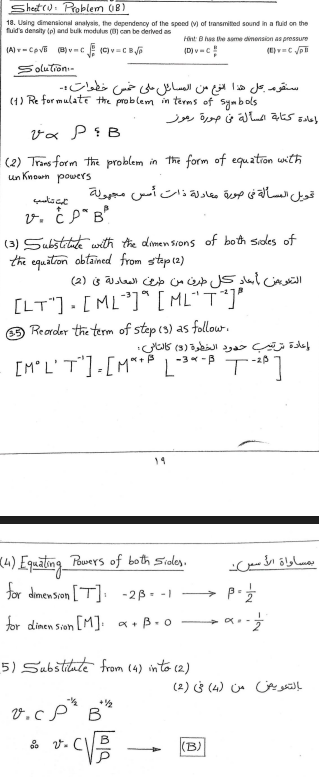 Sheet (1): Problem (18)
18. Using dimensional analysis, the dependency of the speed (v) of transmitted sound in a fluid on the
fluid's density (ρ) and bulk modulus (B) can be derived as
Hint: B has the same dimension as pressure
(A) v = C ρ √B (B) v = C √(B/ρ) (C) v = C B √ρ (D) v = C B/ρ (E) v = C √(ρ B)
Solution:-
سنقوم بحل هذا النوع من المسائل على خمس خطوات :-
(1) Reformulate the problem in terms of symbols
إعادة كتابة المسألة في صورة رموز
v ∝ ρ & B
(2) Transform the problem in the form of equation with
unknown powers
تحويل المسألة في صورة معادلة ذات أسس مجهولة
ثابت تناسب
v = C ρ^α B^β
(3) Substitute with the dimensions of both sides of
the equation obtained from step (2)
التعويض بأبعاد كل طرف من طرفي المعادلة في (2)
[LT⁻¹] = [ML⁻³]^α [ML⁻¹T⁻²]^β
(3.5) Reorder the term of step (3) as follow.
إعادة ترتيب حدود الخطوة (3) كالتالي:
[M⁰ L¹ T⁻¹] = [M^(α+β) L^(-3α-β) T^(-2β)]
19
(4) Equating Powers of both Sides.
بمساواة الأسس:
for dimension [T]: -2β = -1 → β = 1/2
for dimension [M]: α + β = 0 → α = -1/2
5) Substitute from (4) into (2)
بالتعويض من (4) في (2)
v = C ρ^(-1/2) B^(+1/2)
∴ v = C √(B/ρ) → (B)